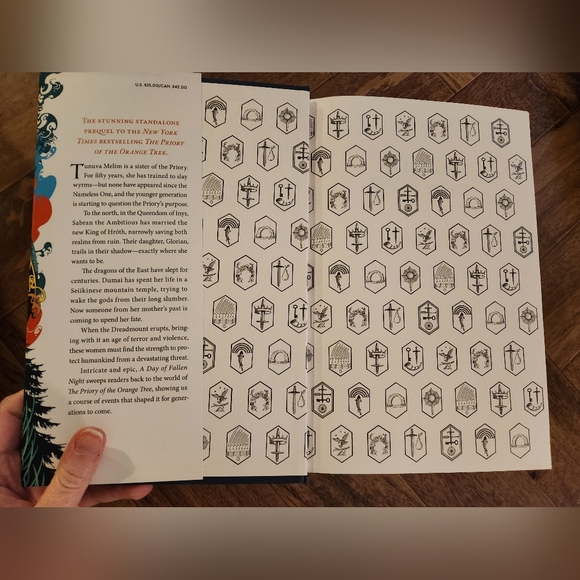 U.S. $35.00/CAN. $42.00
THE STUNNING STANDALONE
PREQUEL TO THE NEW YORK
TIMES BESTSELLING THE PRIORY
OF THE ORANGE TREE.
Tunuva Melim is a sister of the Priory.
For fifty years, she has trained to slay
wyrms—but none have appeared since the
Nameless One, and the younger generation
is starting to question the Priory's purpose.
To the north, in the Queendom of Inys,
Sabran the Ambitious has married the
new King of Hróth, narrowly saving both
realms from ruin. Their daughter, Glorian,
trails in their shadow—exactly where she
wants to be.
The dragons of the East have slept for
centuries. Dumai has spent her life in a
Seiikinese mountain temple, trying to
wake the gods from their long slumber.
Now someone from her mother's past is
coming to upend her fate.
When the Dreadmount erupts, bring-
ing with it an age of terror and violence,
these women must find the strength to pro-
tect humankind from a devastating threat.
Intricate and epic, A Day of Fallen
Night sweeps readers back to the world of
The Priory of the Orange Tree, showing us
a course of events that shaped it for gener-
ations to come.